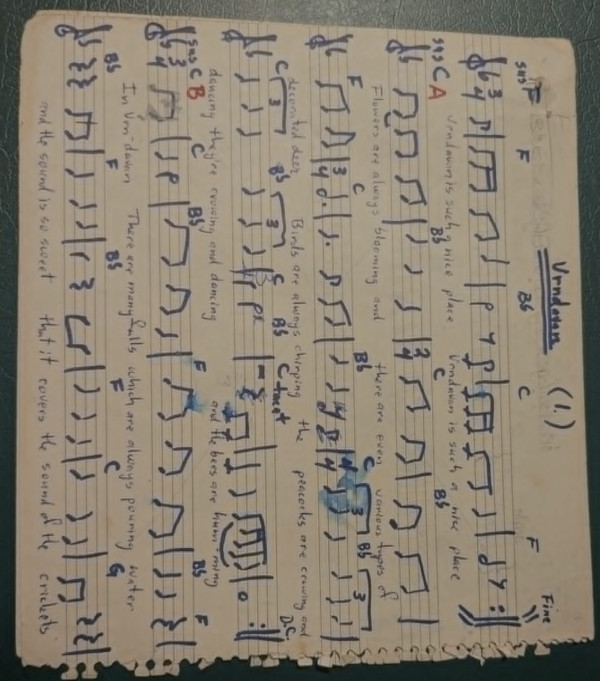 Vrndavan (1.)
susF F Bb C F Fine
Vrndavan is such a nice place Vrndavan is such a nice place
susC A Bb C Bb
Flowers are always blooming and there are even various types of
F C Bb C Bb
decorated deer Birds are always chirping the peacocks are crowing and
C Bb C Bb C D.C.
dancing they're crowing and dancing and the bees are humming
susC B C Bb F Bb F
In Vrndavan There are many which are always pouring water
Bb F Bb F C G
and the sound is so sweet that it covers the sound of the crickets